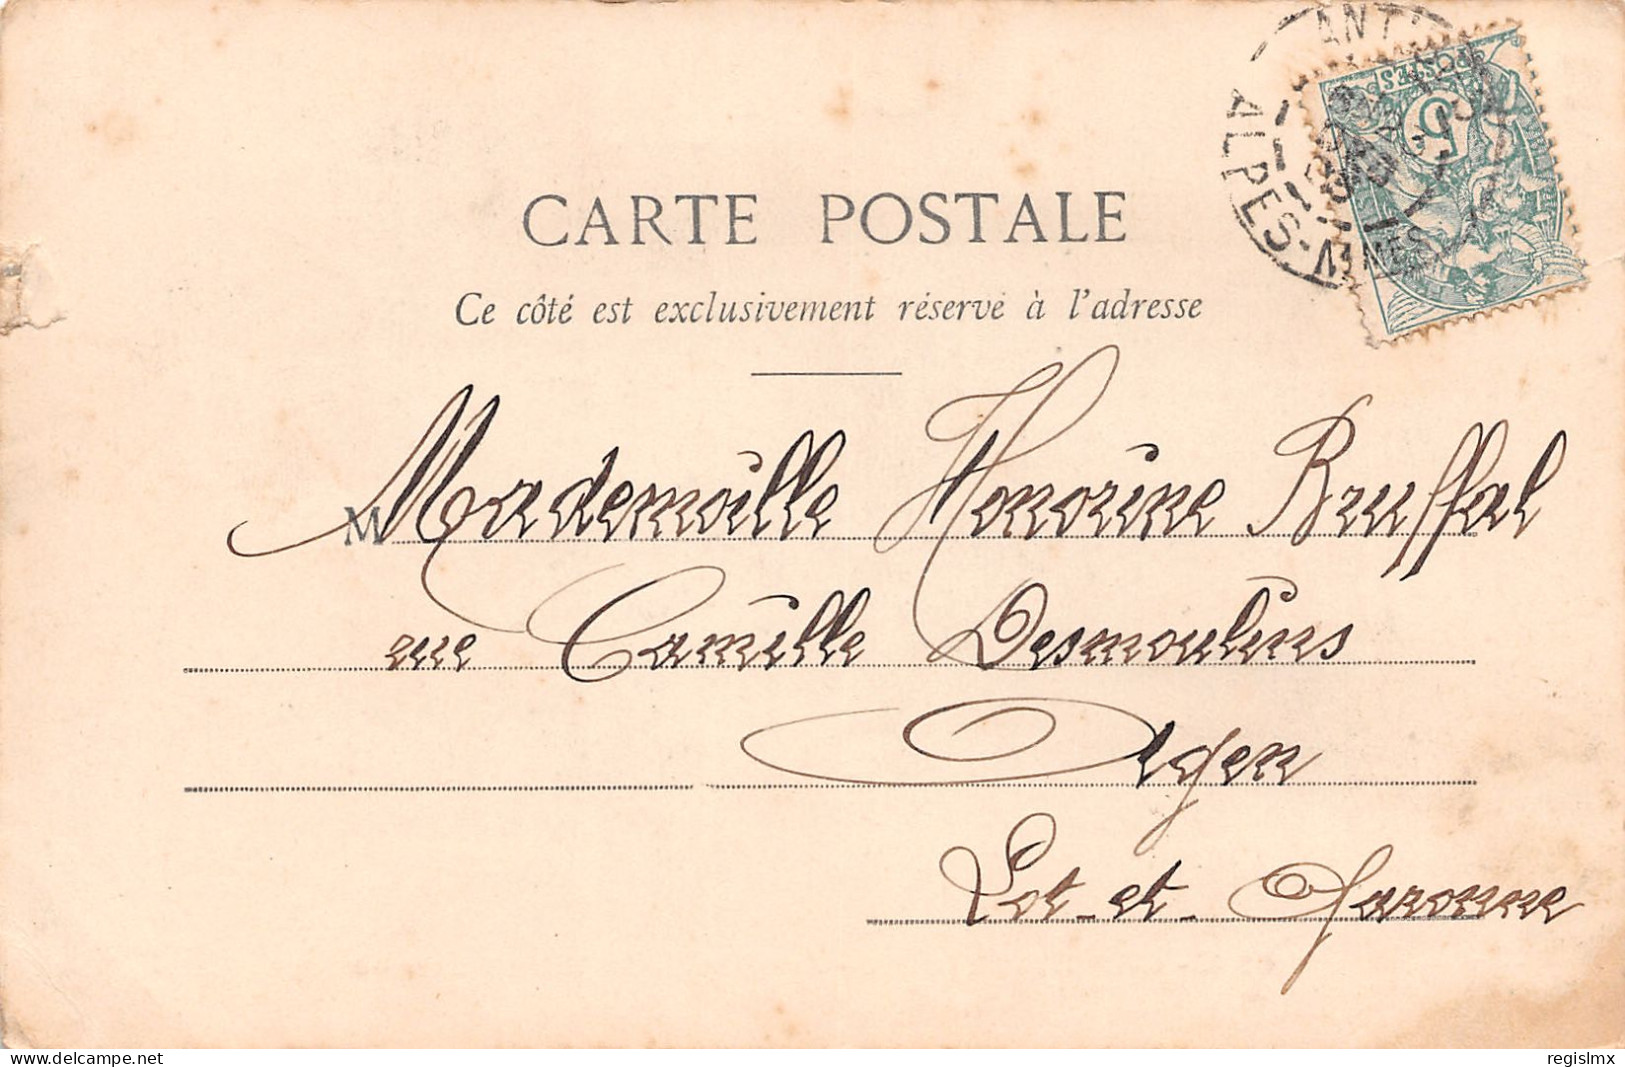 CARTE POSTALE
Ce côté est exclusivement réservé à l'adresse
M Mademoiselle Honorine Bruffal
rue Camille Desmoulins
Agen
Lot-et-Garonne
ALPES-
POSTES
5
delcampe.net
regislmx